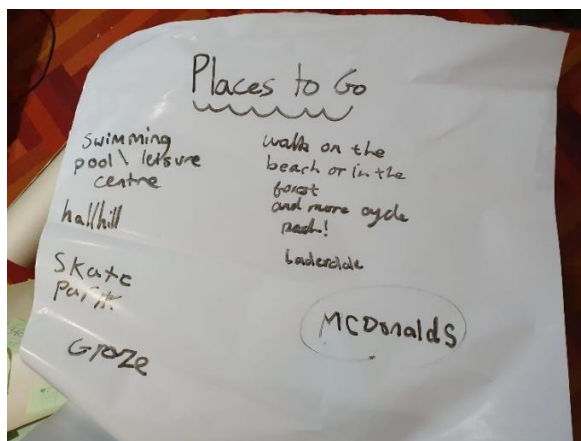 Places to Go
swimming
pool \ leisure
centre
hallhill
Skate
Park
Graze
walk on the
beach or in the
forest
and more cycle
MCDonalds